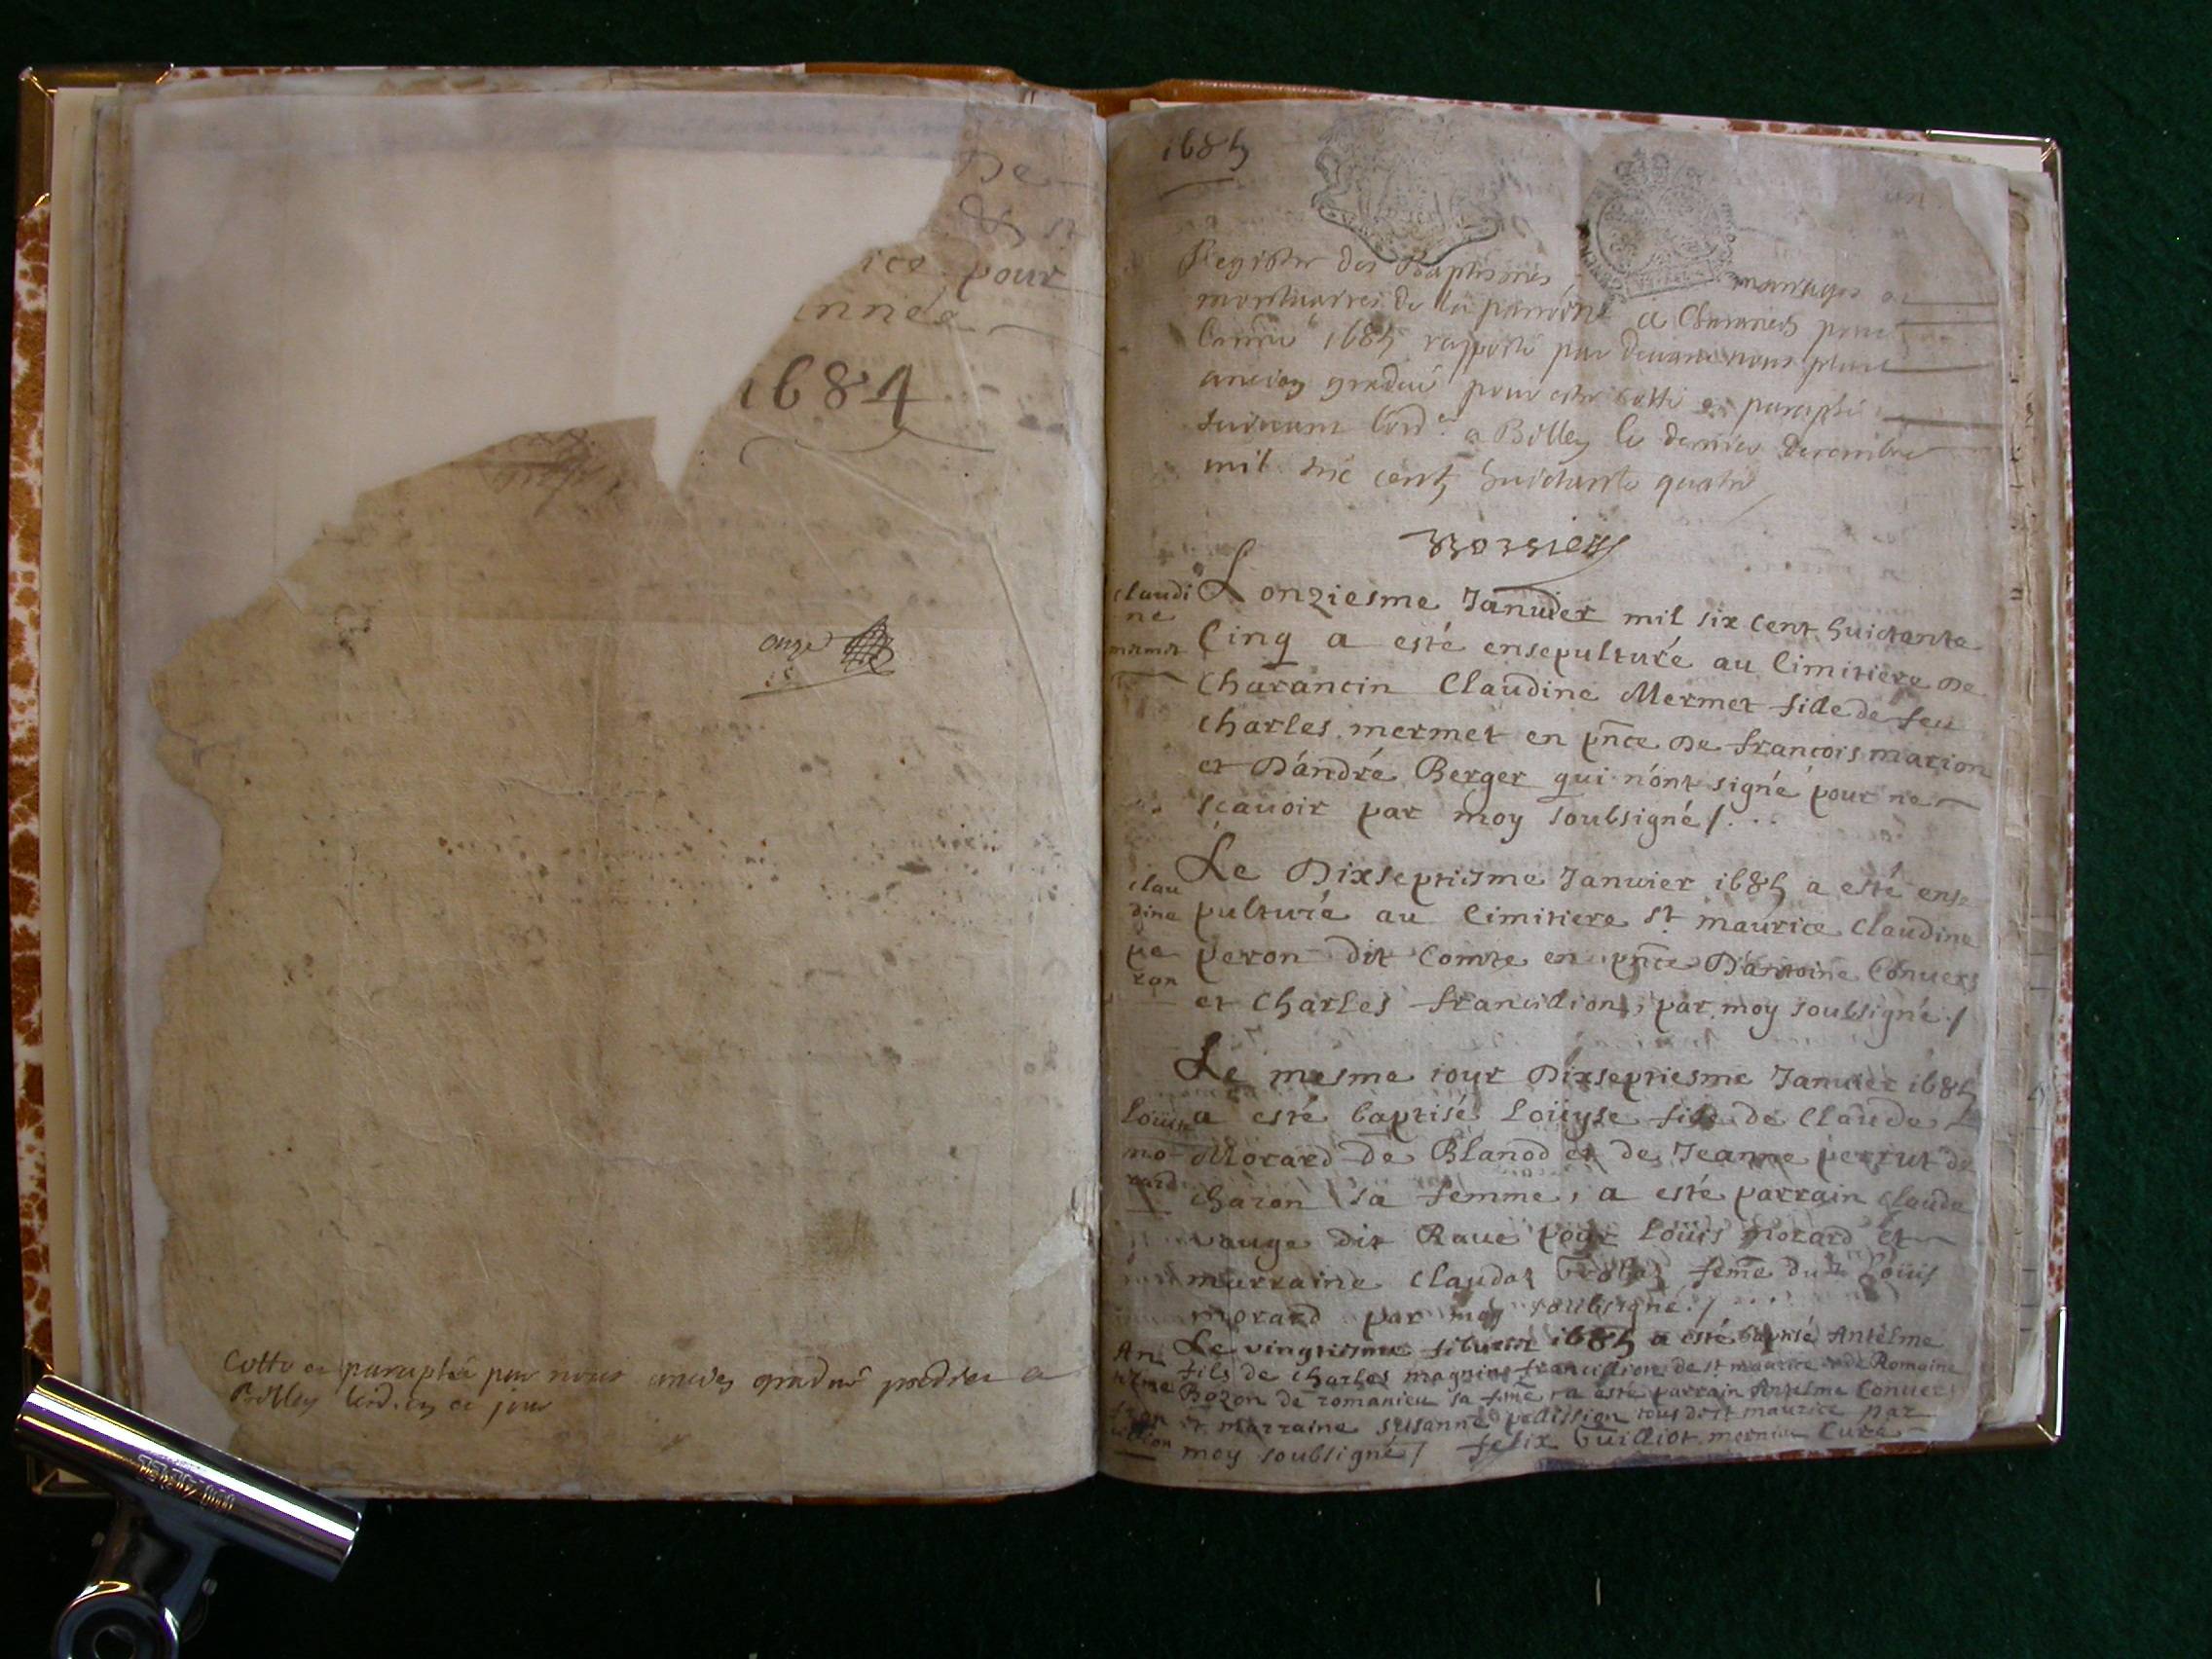 De
& st
ice pour
année
1684
onze
Cotté et paraphé par nous ancien gradué
Belley ce jour
1685
un
Registre des Baptesmes mariages et
mortuaires de la parroisse a pour
l'année 1685 rapporté par devant nous plus
ancien gradué pour estre cotté et paraphé
suivant lord.e a Belley le dernier decembre
mil six cent huictante quatre
claudi
ne
mermet
L onziesme Januier mil six cent huictante
Cinq a esté ensepulturé au Cimitiere De
Charancin Claudine Mermet fille de feu
charles mermet en pnce De francois marion
et D'andré Berger qui n'ont signé pour ne
scauoir par moy soubsigné /. . .
clau
dine
pe
ron
Le Dixseptiesme Januier 1685 a esté ense
pulturé au Cimitiere st maurice Claudine
peron dit Comte en pnce D'antoine Conuers
et Charles francillion, par moy soubsigné /
Le mesme iour Dixseptiesme Januier 1685
Loüise
mo
rard
a esté baptisé Loüyse fille de Claude
Morard de Blanod et de Jeanne perrut de
charon sa femme, a esté parrain Claude
vauge dit Raue pour Loüis morard et
marraine Claudaz femme dud Loüis
morard par moy soubsigné / . . .
An
telme
fran
cillion
Le vingtiesme 1685 a esté baptisé Antelme
fils de charles magnin francillion de st maurice et de Romaine
Bozon de romanieu sa fme, a esté parrain Antelme Conuers
et marraine susanne pellission tous de st maurice par
moy soubsigné / felix Guilliot Curé